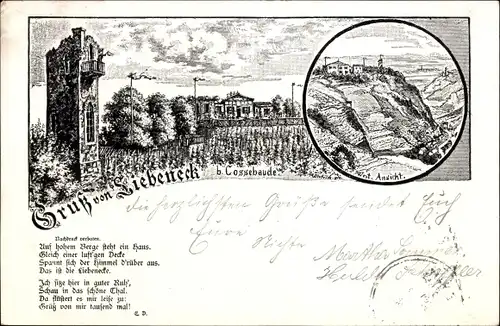 Gruß von Liebeneck
b. Cossebaude.
Ansicht.
Nachdruck verboten.
Auf hohem Berge steht ein Haus.
Gleich einer luft'gen Decke
Spannt sich der Himmel d'rüber aus.
Das ist die Liebenecke.
Ich sitze hier in guter Ruh',
Schau in das schöne Thal.
Da flüstert es mir leise zu:
Grüß von mir tausend mal!
E. D.
die herzlichsten Grüße sendet Euch
Eure Nichte Martha